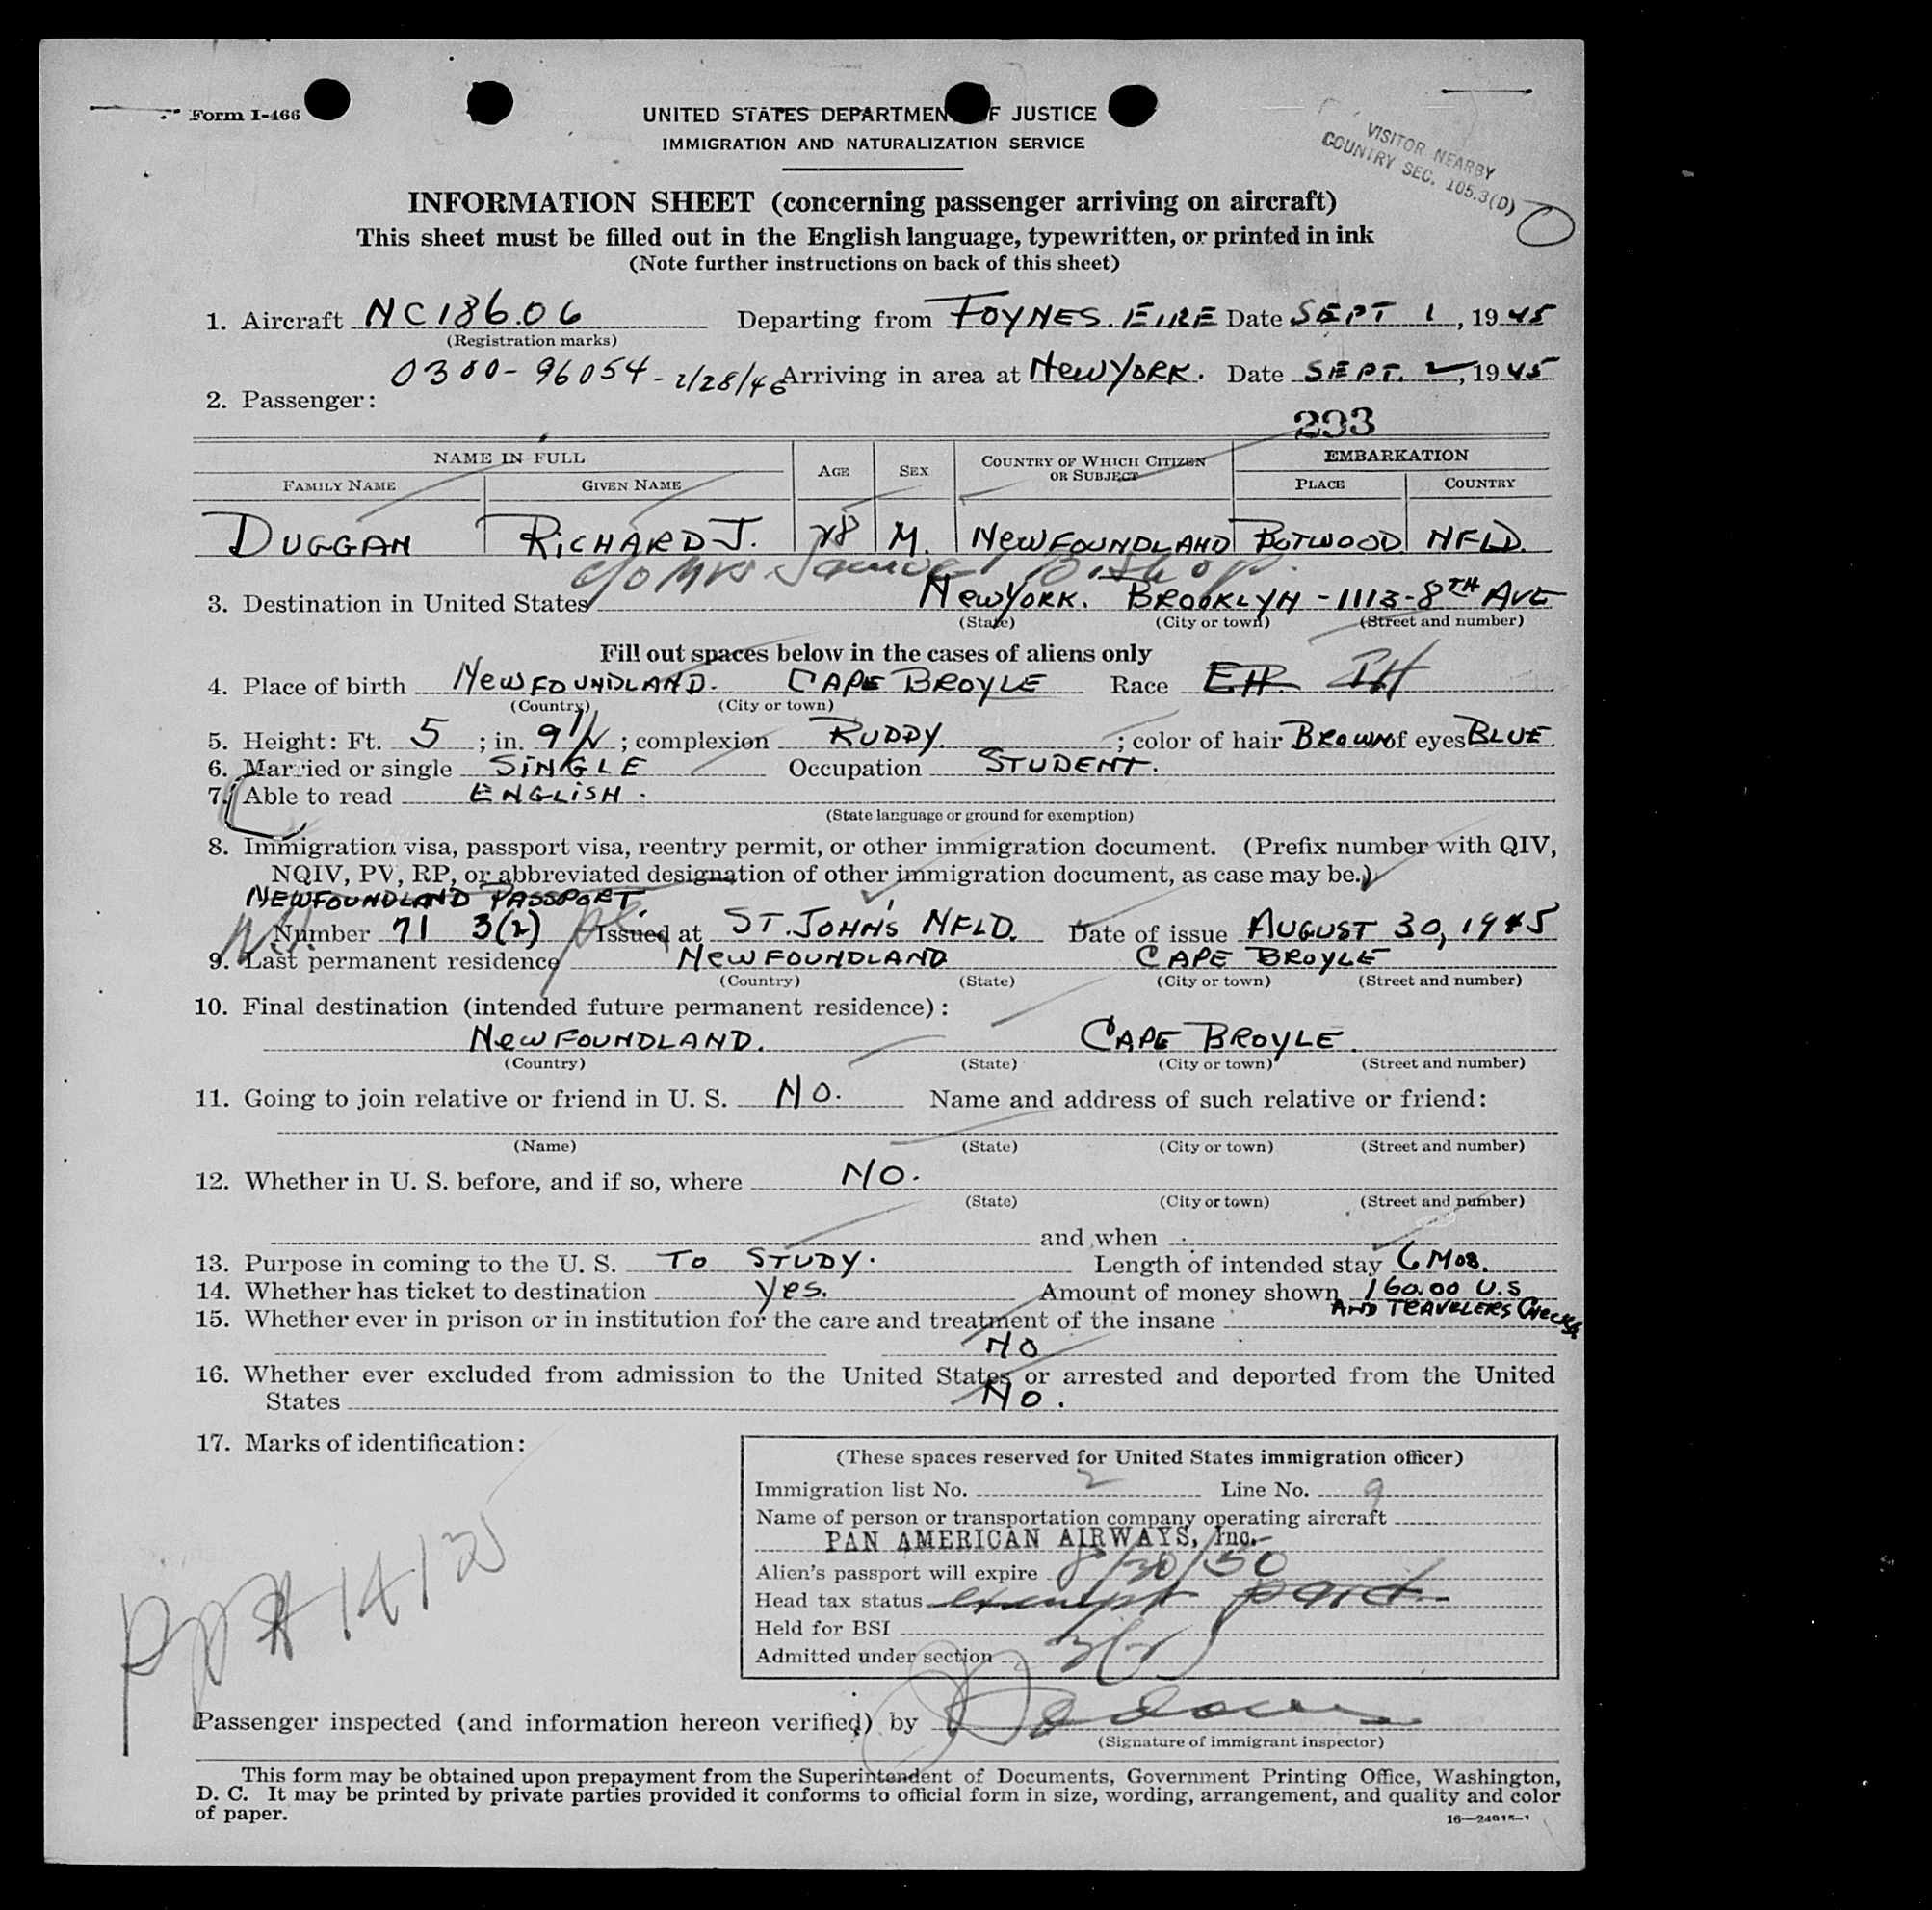 Form I-466
UNITED STATES DEPARTMENT OF JUSTICE
IMMIGRATION AND NATURALIZATION SERVICE
VISITOR NEARBY
COUNTRY SEC. 105.3(D)
INFORMATION SHEET (concerning passenger arriving on aircraft)
This sheet must be filled out in the English language, typewritten, or printed in ink
(Note further instructions on back of this sheet)
1. Aircraft NC18606 Departing from FOYNES. EIRE Date SEPT 1, 1945
(Registration marks)
0300-96054-2/28/46 Arriving in area at NEW YORK. Date SEPT. 2, 1945
2. Passenger:
293
NAME IN FULL AGE SEX COUNTRY OF WHICH CITIZEN OR SUBJECT EMBARKATION
FAMILY NAME GIVEN NAME PLACE COUNTRY
DUGGAN RICHARD J. 28 M. NEWFOUNDLAND BOTWOOD NFLD.
c/o Mrs. Samuel Bishop.
3. Destination in United States NEW YORK. BROOKLYN-1113-8TH AVE
(State) (City or town) (Street and number)
Fill out spaces below in the cases of aliens only
4. Place of birth NEWFOUNDLAND. CAPE BROYLE Race EH. IH
(Country) (City or town)
5. Height: Ft. 5; in. 9 1/2; complexion RUDDY.; color of hair BROWN of eyes BLUE.
6. Married or single SINGLE Occupation STUDENT.
7. Able to read ENGLISH.
(State language or ground for exemption)
8. Immigration visa, passport visa, reentry permit, or other immigration document. (Prefix number with QIV,
NQIV, PV, RP, or abbreviated designation of other immigration document, as case may be.)
NEWFOUNDLAND PASSPORT.
Number 71 3(2) Issued at ST. JOHN'S NFLD. Date of issue AUGUST 30, 1945
9. Last permanent residence NEWFOUNDLAND CAPE BROYLE
(Country) (State) (City or town) (Street and number)
10. Final destination (intended future permanent residence):
NEWFOUNDLAND. CAPE BROYLE.
(Country) (State) (City or town) (Street and number)
11. Going to join relative or friend in U. S. NO. Name and address of such relative or friend:
(Name) (State) (City or town) (Street and number)
12. Whether in U. S. before, and if so, where NO.
(State) (City or town) (Street and number)
and when
13. Purpose in coming to the U. S. TO STUDY. Length of intended stay 6 MOS.
14. Whether has ticket to destination YES. Amount of money shown 160.00 U.S
AND TRAVELERS CHECKS
15. Whether ever in prison or in institution for the care and treatment of the insane
NO
16. Whether ever excluded from admission to the United States or arrested and deported from the United
States NO.
17. Marks of identification:
(These spaces reserved for United States immigration officer)
Immigration list No. 2 Line No. 9
Name of person or transportation company operating aircraft
PAN AMERICAN AIRWAYS, Inc.
Alien's passport will expire 8/30/50
Head tax status exempt paid
Held for BSI
Admitted under section 3(2)
Passenger inspected (and information hereon verified) by
(Signature of immigrant inspector)
This form may be obtained upon prepayment from the Superintendent of Documents, Government Printing Office, Washington,
D. C. It may be printed by private parties provided it conforms to official form in size, wording, arrangement, and quality and color
of paper.